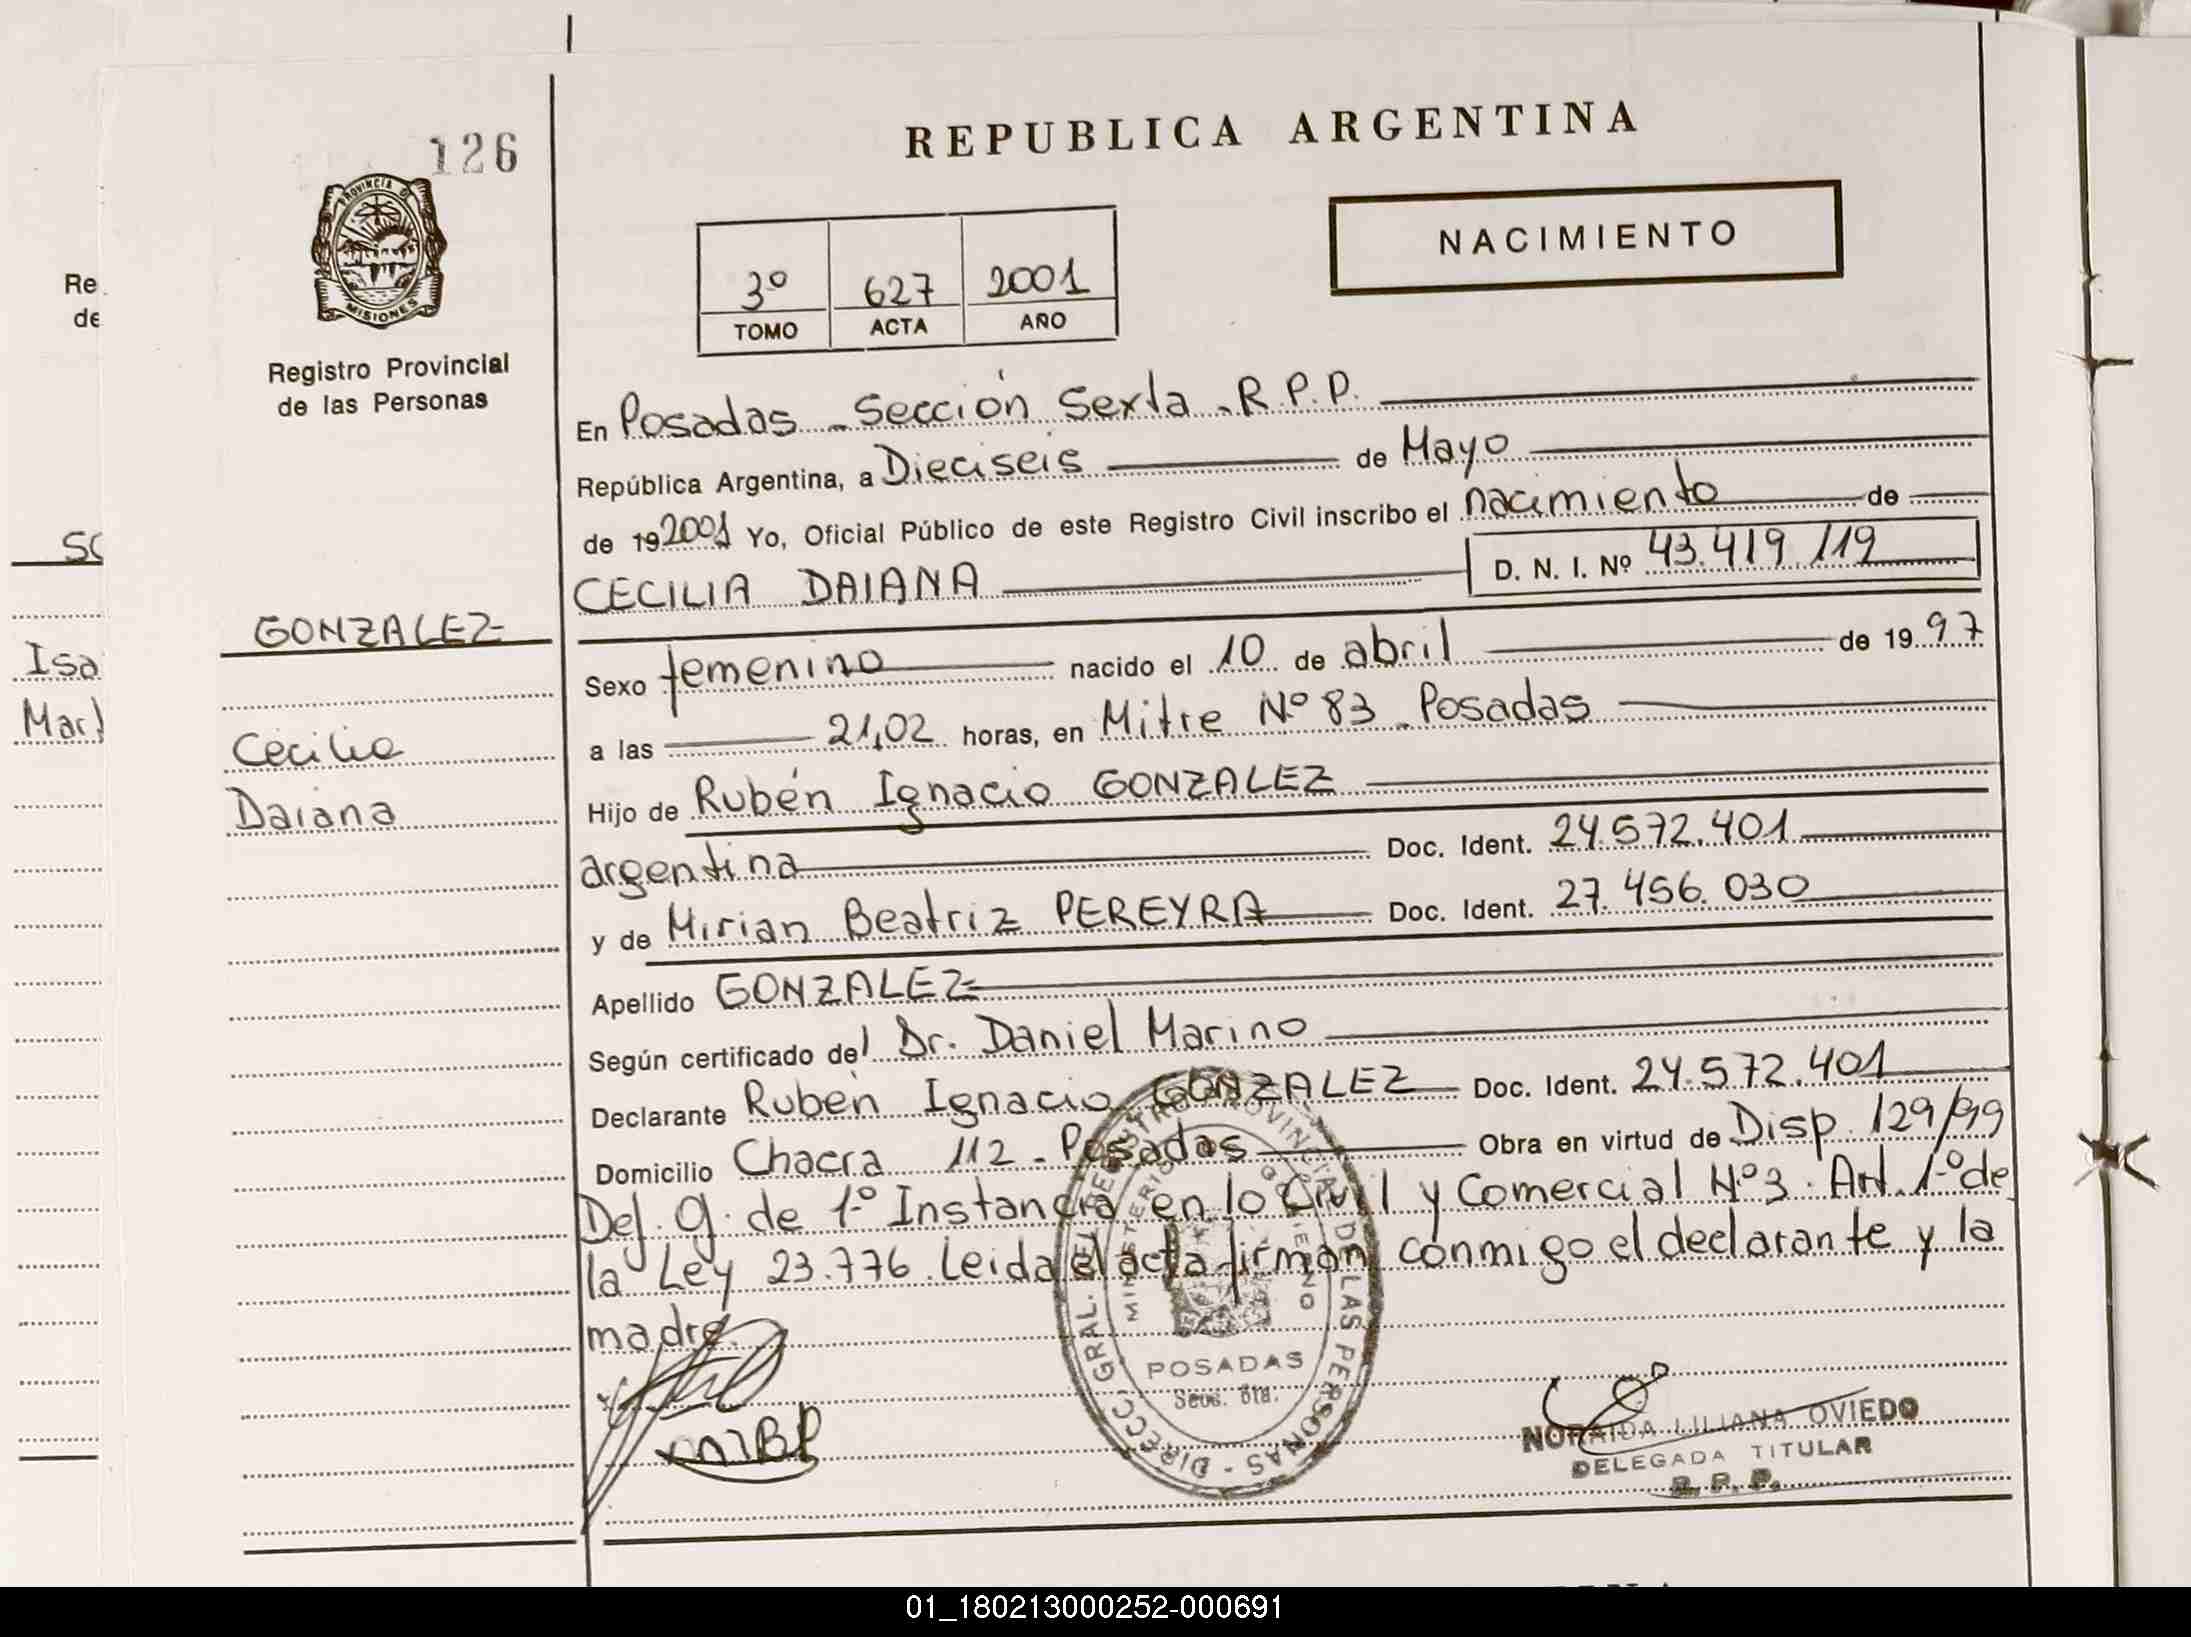 126
REPUBLICA ARGENTINA
PROVINCIA DE
MISIONES
NACIMIENTO
3º 627 2001
TOMO ACTA AÑO
Registro Provincial
de las Personas
Re
de
En Posadas - Sección Sexta - R.P.P.
República Argentina, a Dieciseis de Mayo
de 19 2001 Yo, Oficial Público de este Registro Civil inscribo el nacimiento de
D. N. I. Nº 43.419.119
CECILIA DAIANA
GONZALEZ
Isa
Mar
Sexo femenino nacido el 10 de abril de 1997
Cecilia
a las 21,02 horas, en Mitre Nº 83 - Posadas
Daiana
Hijo de Rubén Ignacio GONZALEZ
argentina Doc. Ident. 24.572.401
y de Mirian Beatriz PEREYRA Doc. Ident. 27.456.030
Apellido GONZALEZ
Según certificado del Dr. Daniel Marino
Declarante Rubén Ignacio GONZALEZ Doc. Ident. 24.572.401
Domicilio Chacra 112 - Posadas Obra en virtud de Disp. 129/99
Def. g. de 1º Instancia en lo Civil y Comercial Nº 3. Art. 1º de
la Ley 23.776. Leida el acta firman conmigo el declarante y la
madre.
MBP
DIRECC. GRAL. DEL REGISTRO PROVINCIAL DE LAS PERSONAS
MINISTERIO DE GOBIERNO
POSADAS
Secc. 6ta.
NORAIDA LILIANA OVIEDO
DELEGADA TITULAR
R. P. P.
01_180213000252-000691